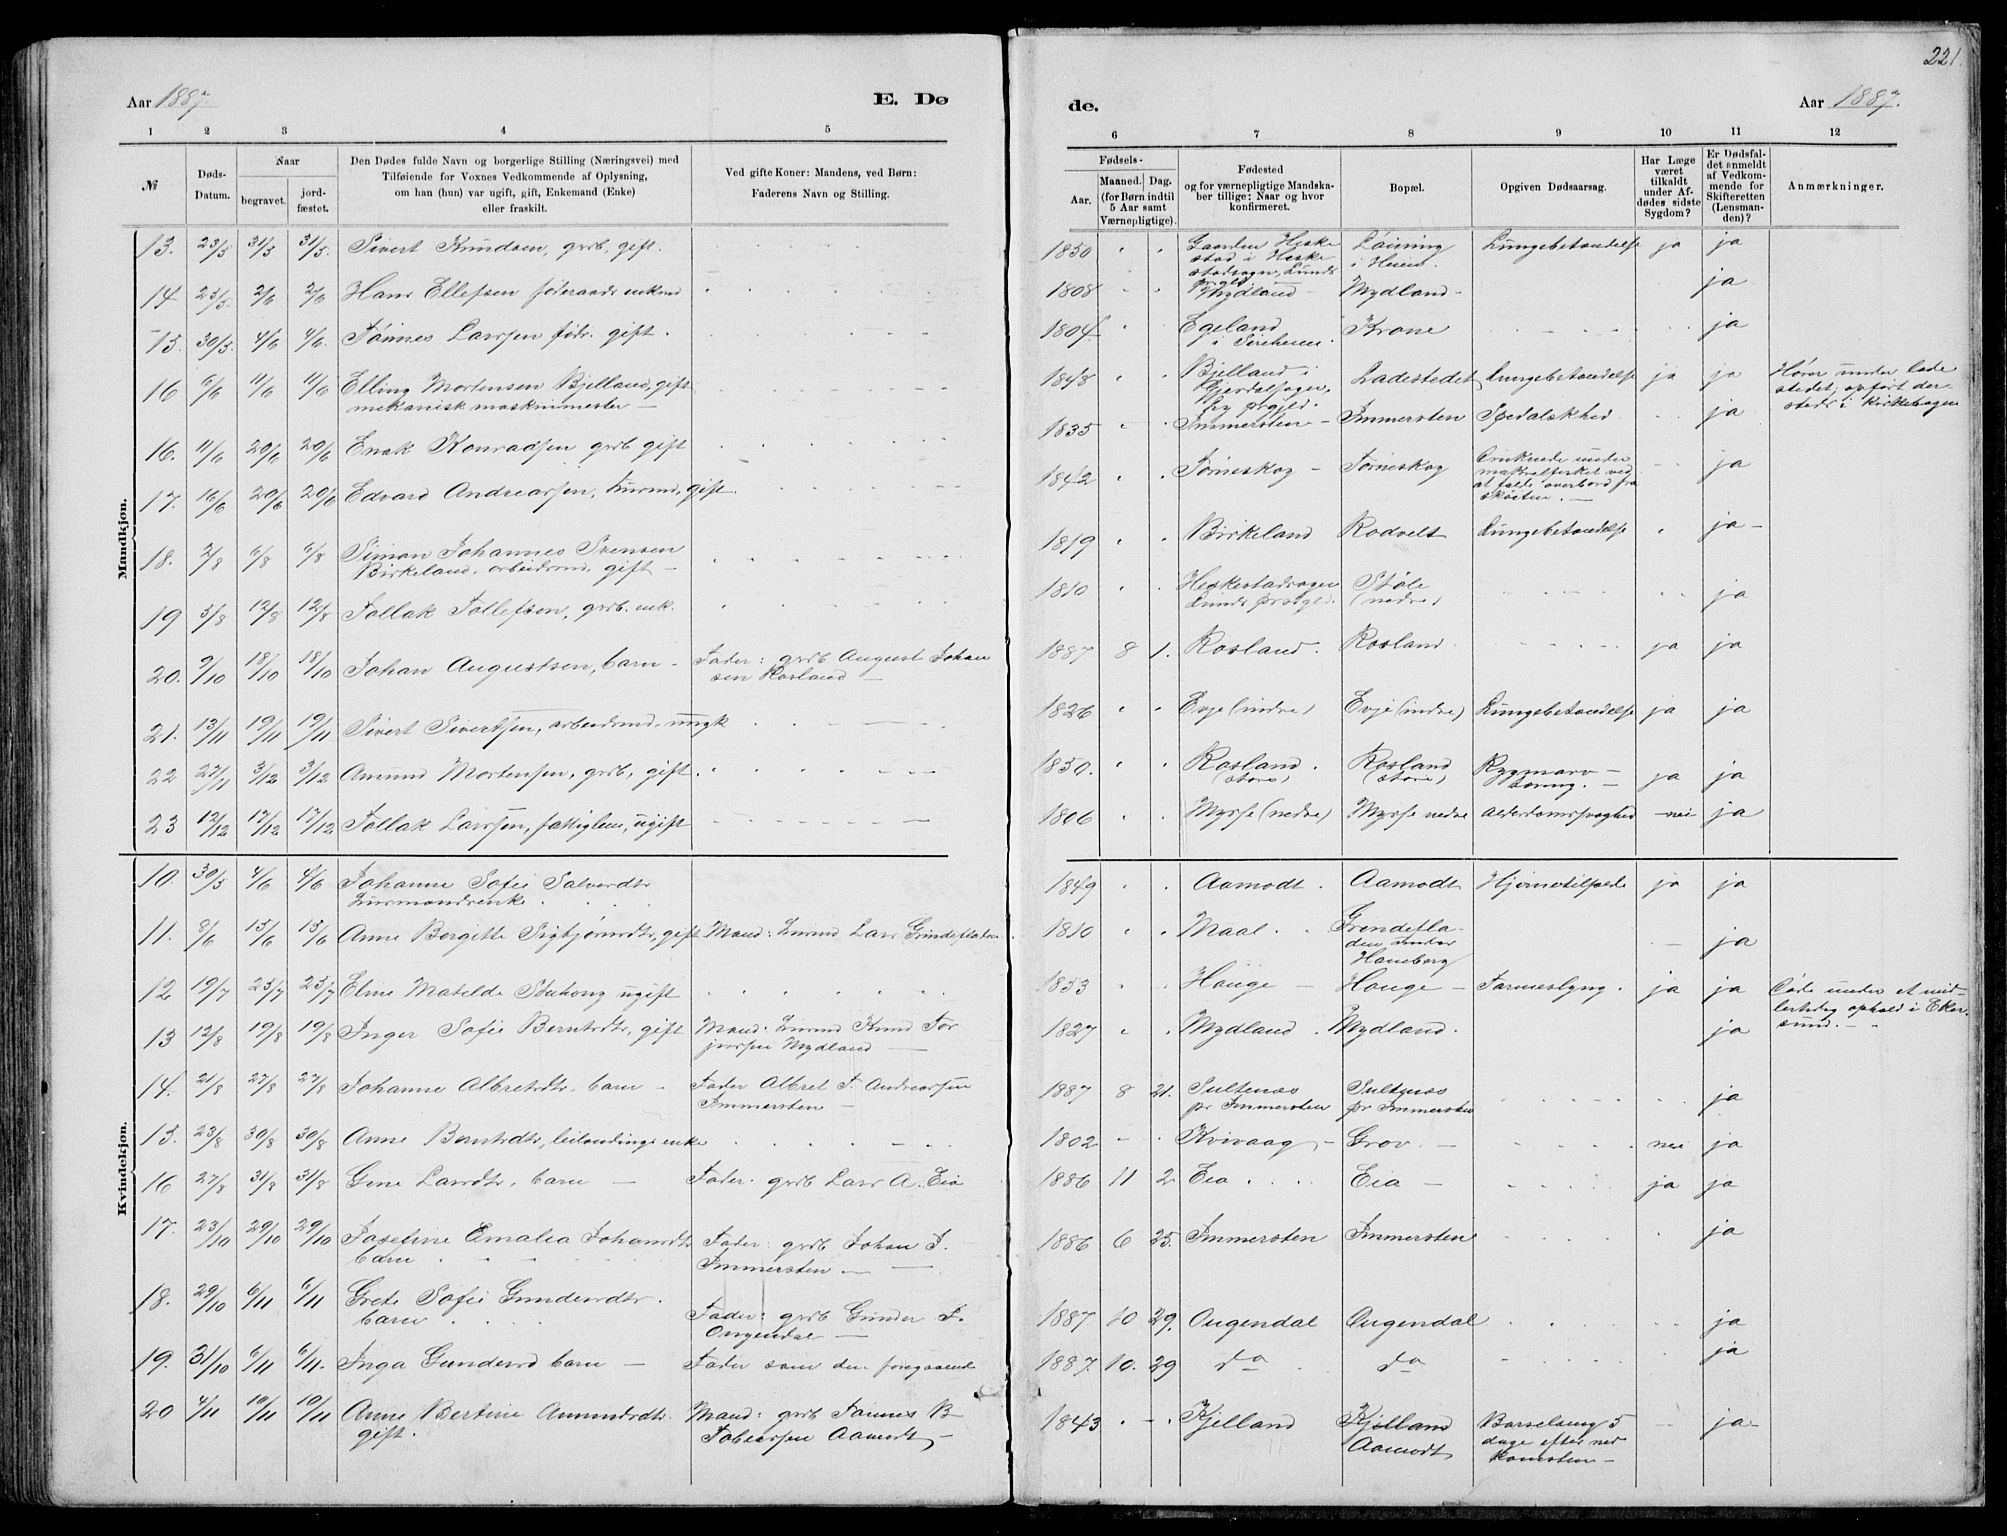 221.
Aar 1887. E. Dø de. Aar 1887.
1 2 3 4 5 6 7 8 9 10 11 12
№
Døds-Datum.
Naar begravet. jordfæstet.
Den Dødes fulde Navn og borgerlige Stilling (Næringsvei) med
Tilføiende for Voxnes Vedkommende af Oplysning,
om han (hun) var ugift, gift, Enkemand (Enke)
eller fraskilt.
Ved gifte Koner: Mandens, ved Børn:
Faderens Navn og Stilling.
Fødsels-
Aar. Maaned. Dag.
(for Børn indtil
5 Aar samt
Værnepligtige).
Fødested
og for værnepligtige Mandska-
ber tillige: Naar og hvor
konfirmeret.
Bopæl.
Opgiven Dødsaarsag.
Har Læge
været
tilkaldt
under Af-
dødes sidste
Sygdom?
Er Dødsfal-
det anmeldt
af Vedkom-
mende for
Skifteretten
(Lensman-
den)?
Anmærkninger.
Mandkjøn.
13. 23/5 31/5 31/5. Sivert Knudsen, grdb. gift. 1850 Heske
stad i Heske
stadsogn, Lunds
prgld. Løining
i Heien. Lungebetændelse ja ja
14 25/5 2/6 2/6 Hans Ellefsen føderaads enkmd 1808 Mydland Mydland ja
15. 30/5. 4/6 4/6. Tønnes Larssen fødr. gift. 1804 Egeland
i Sireheien. Krone ja
16 6/6 11/6 11/6 Elling Mortensen Bjelland, gift
mekanisk maskinmester 1848 Bjelland i
Gjerdalsogn,
prgjld. Ladestedet Lungebetændelse ja ja Hører under lade
stedet, opført der-
steds i kirkebogen
16. 11/6 20/6 20/6 Enok Konradsen grdb gift 1835 Immersten Immersten Spedalskhed ja
17. 16/6 20/6 20/6 Edvard Andreassen, husmd, gift. 1842 Tørneskog Tørneskog Druknede under
makrelfisket ved
at falde overbord fra
skøiten. ja
18. 2/8 6/8 6/8 Simon Johannes Svensen
Birkeland. arbeidsmd, gift 1819 Birkeland Rodvelt Lungebetændelse ja
19 3/8 12/8 12/8 Tollak Tollefsen, grdb. enk. 1810 Heskestadsogn
Lunds prstgld. Støle
(nedre) ja
20. 9/10 18/10 18/10 Johan Augustsen, barn Fader: grdb August Johan
sen Rosland 1887 8 1. Rosland. Rosland. ja ja
21. 13/11 19/11 19/11 Sivert Sivertsen, arbeidsmd. ungk 1826 Evje (indre) Evje (indre) Lungebetændelse ja ja
22 27/11 3/12 3/12 Amund Mortensen, grdb, gift. 1850. Rosland
(store) Rosland
(store) Rygmarv-
tæring. ja ja
23 12/12 17/12 17/12 Tollak Larssen, fattiglem, ugift 1806 Mysse (nedre) Mysse nedre Alderdomssvaghed nei ja
Kvindekjøn.
10. 30/5 4/6 4/6 Johanne Sofie Salvesdtr
husmandsenke 1849 Aamodt. Aamodt Hjernetilfælde ja ja
11. 8/6 15/6 15/6 Anne Bergitte Sigbjørnsdtr, gift Mand: husmd Lars Grindefladen. 1810 Maal. Grindefla-
den under
Haneberg ja
12 19/7 25/7 25/7 Eline Matilde Stuhoug ugift 1853 Hauge Hauge Tarmeslyng. ja ja Døde under et mid-
lertidig ophold i Eker-
sund.
13 12/8 19/8 19/8 Inger Sofie Berntsdtr, gift Mand: husmd Knud Tor
jussen Mydland 1827 Mydland. Mydland. ja
14. 21/8 27/8 27/8 Johanne Albretsdtr. barn Fader Albret T. Andreassen
Immersten 1887 8 21. Sultenæs
pr Immersten Sultenæs
pr Immersten ja
15. 23/8 30/8 30/8 Anne Berntsdtr, leilændings enke 1802 Kvivaag Grov nei ja
16 27/8 31/8 31/8 Gine Larsdtr, barn Fader: grdb Lars A. Eia 1886 11 2 Eia Eia ja ja
17. 23/10 29/10 29/10 Josefine Emalia Johansdtr
barn Fader: grdb Johan J.
Immersten 1886 6 25. Immersten Immersten ja
18. 29/10 6/11 6/11 Grete Sofie Gundersdtr.
barn Fader: grdb Gunder J.
Ougendal 1887 10 29. Ougendal Ougendal ja
19. 31/10 6/11 6/11. Inga Gundersd barn Fader som den foregaaende 1887. 10. 29 do do ja
20 4/11 10/11 10/11 Anne Bertine Amundsdtr.
gift. Mand: grdb Tønnes B
Tobiassen Aamodt 1843 Kjelland Kjelland
Aamodt Barselseng 5
dage efter ned
komsten ja